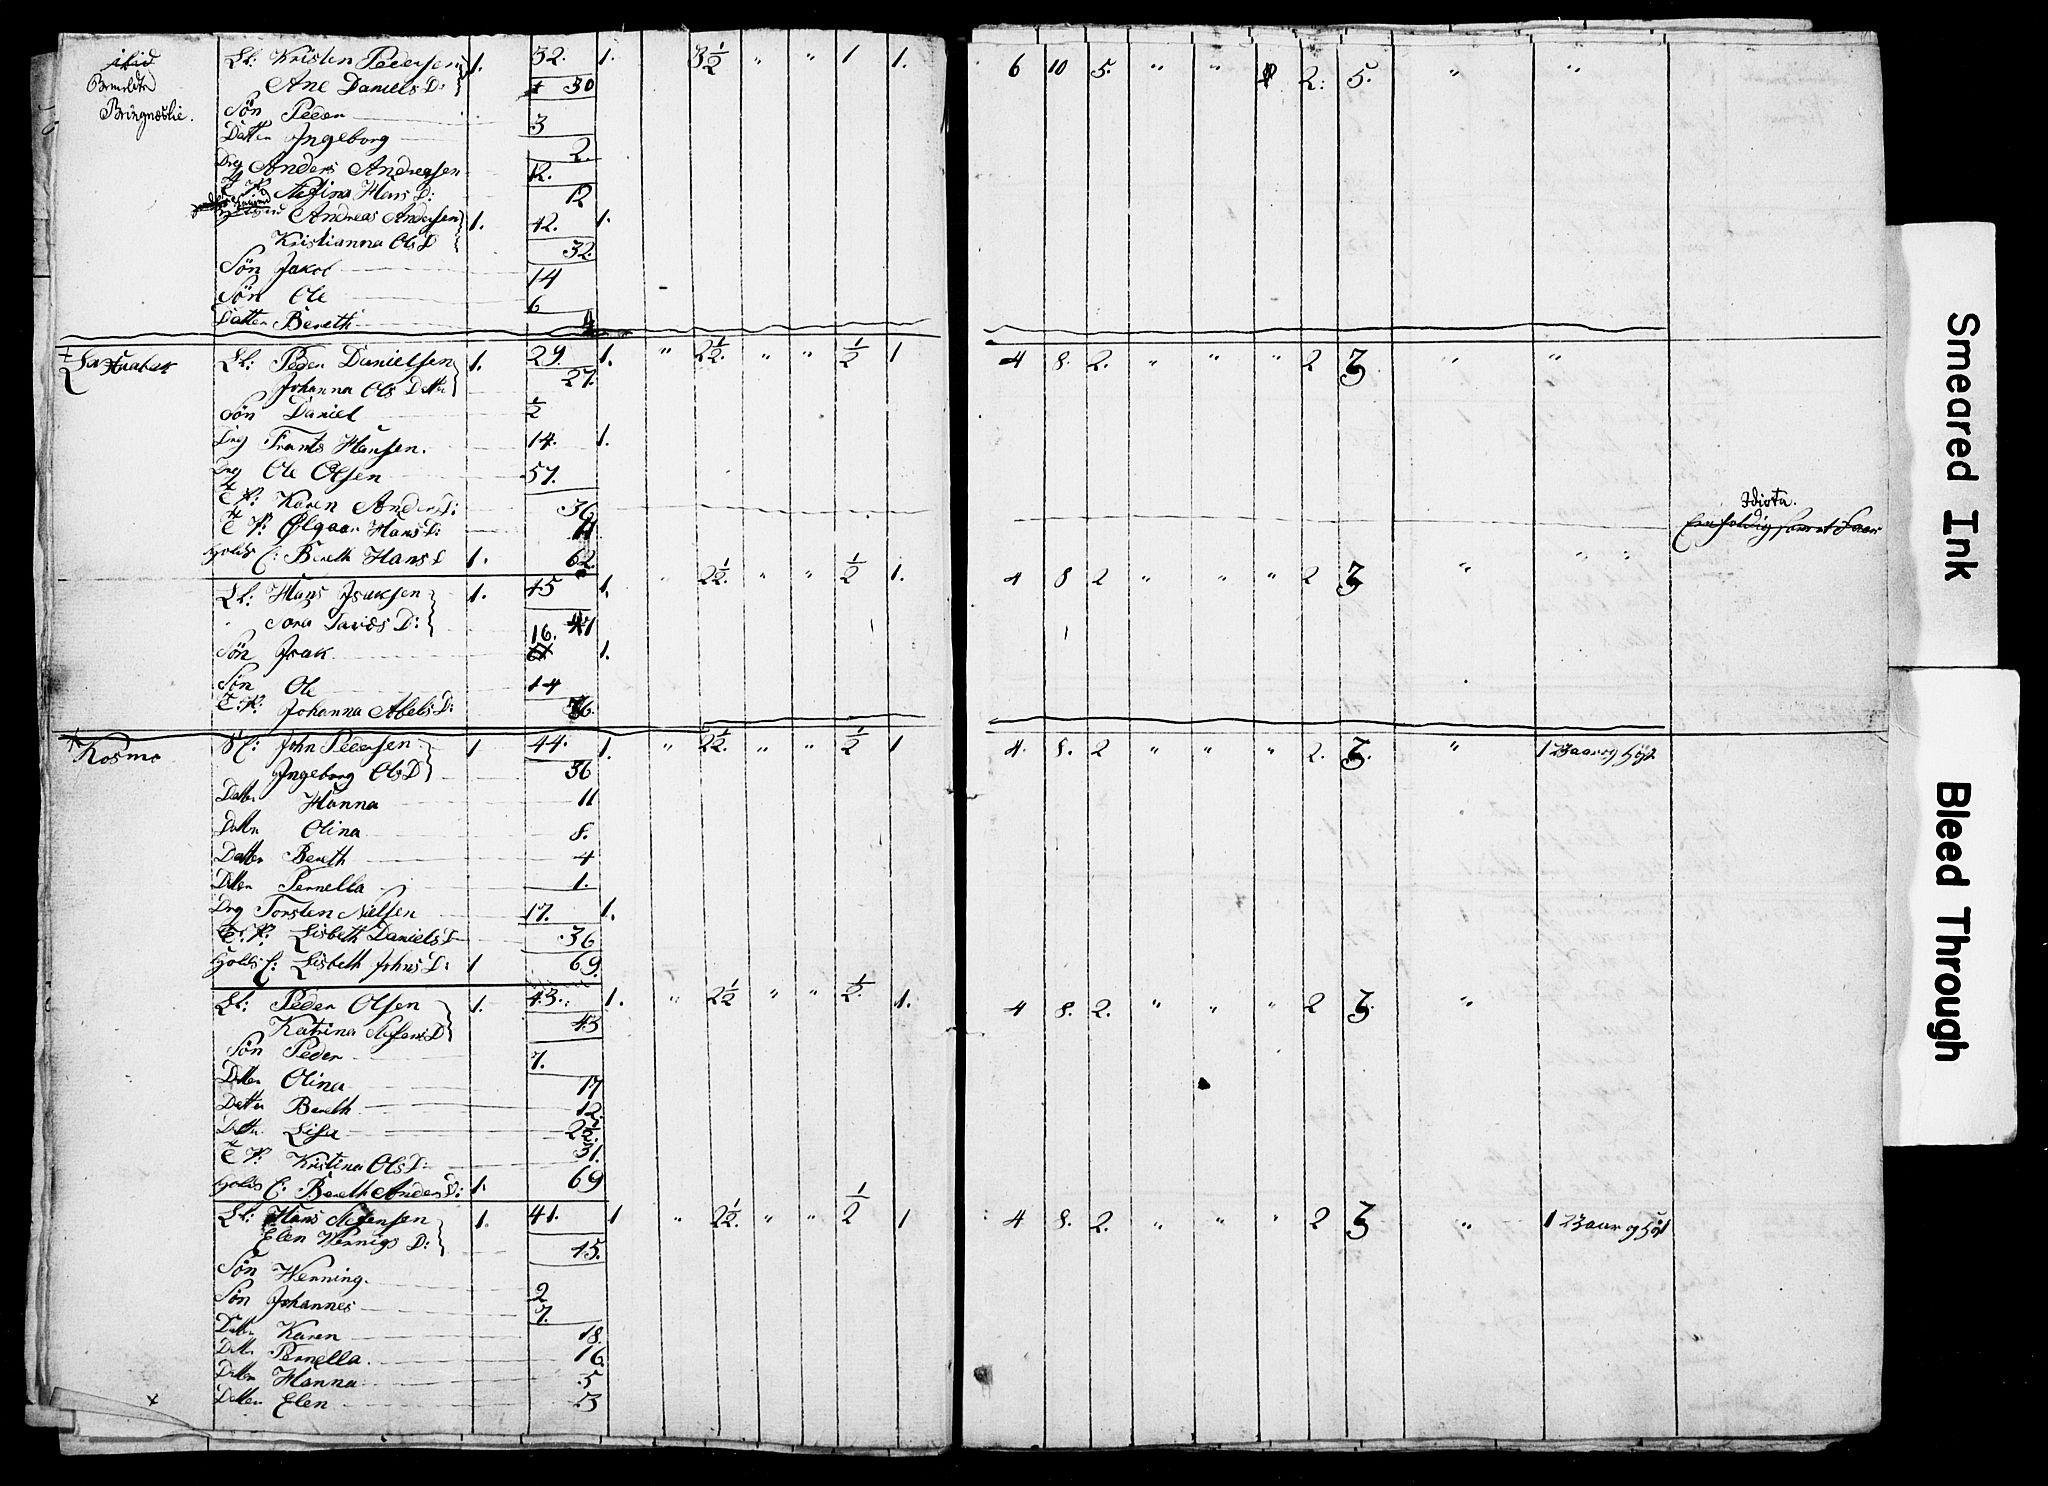 ibid Ll: Kristen Pedersen 1. 32. 1. 3½ " " 1 1. 6 10 5. " " 2: 5. " "
Ane Daniels D: 30
Bringneslie.
Søn Peder 3
Datter Ingeborg 2.
Drg Anders Andreasen 12.
T P. Hans D: 12
Andreas Andersen 1. 42. 1.
Kristianna Ols D 32.
Søn Jakob 14
Søn Ole 6
Datter Bereth
Ll: Peder Danielsen 1. 29. 1. " 2½. " " ½ 1 4 8. 2. " " " 2 3 " "
Johanna Ols Datter 27.
Søn Daniel ½
Drg Frants Hansen. 14. 1.
Drg Ole Olsen 57.
T P: Karen Anders D: 36
Idiota.
T P: Ølgaar Hans D: 11
Holds C: Bereth Hans D 1. 62.
Ll: Hans Isaksen 1. 45 1. " 2½. " " ½ 1. 4 8 2 " " " 2 3 "
D: 41
Søn Isak 16. 1.
Søn Ole 14
T. P. Johanna Abels D: 36.
Kosmo John Pedersen 1 44. 1. " 2½. " " ½ 1 4. 8. 2 " " " 2. 3. " 1
Ingeborg Ols D 36
Datter Hanna 11
Datter Olina 8.
Datter Bereth 4
Datter Pernella 1.
Drg Torsten Nielsen 17. 1.
T. P: Lisbeth Daniels D 36
Holds C: Lisbeth Johns D: 1 69.
Ll: Peder Olsen 1. 43. 1. " 2½ " " ½. 1. 4 8. 2. " " " 2 3. "
Katrina D 43
Søn Peder 7.
Datter Olina 17
Datter Bereth 12.
Datter Lisa 2½.
T P. Kristina Ols D: 31.
Holds C: Bereth Anders D: 1. 69
Ll: Hans Mortensen 1. 41. 1 " 2½. " " ½ 1 4 8. 2. " " " 2 3 " 1
Elen Wernigs D: 45.
Søn Werning 2
Søn Johannes 7.
Datter Karen 18.
Datter Pernella. 16.
Datter Hanna 5
Datter Elen 3
Smeared Ink
Bleed Through